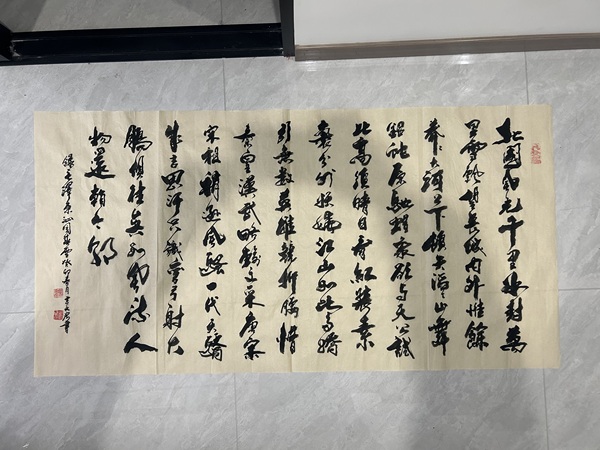 北國風光千里冰封萬
里雪飄望長城内外惟餘
莽莽大河上下頓失滔滔山舞
銀蛇原馳蠟象欲與天公試
比高須晴日看紅裝素
裹分外妖嬈江山如此多嬌
引無數英雄競折腰惜
秦皇漢武略輸文采唐宗
宋祖稍遜風騷一代天驕
成吉思汗只識彎弓射大
鵰俱往矣數風流人
物還看今朝
錄毛澤東沁園春雪